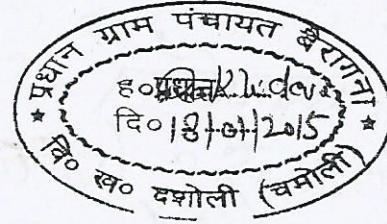 प्रधान ग्राम पंचायत बैरागना
ह०
दि० 18/01/2015
वि० ख० दशोली (चमोली)